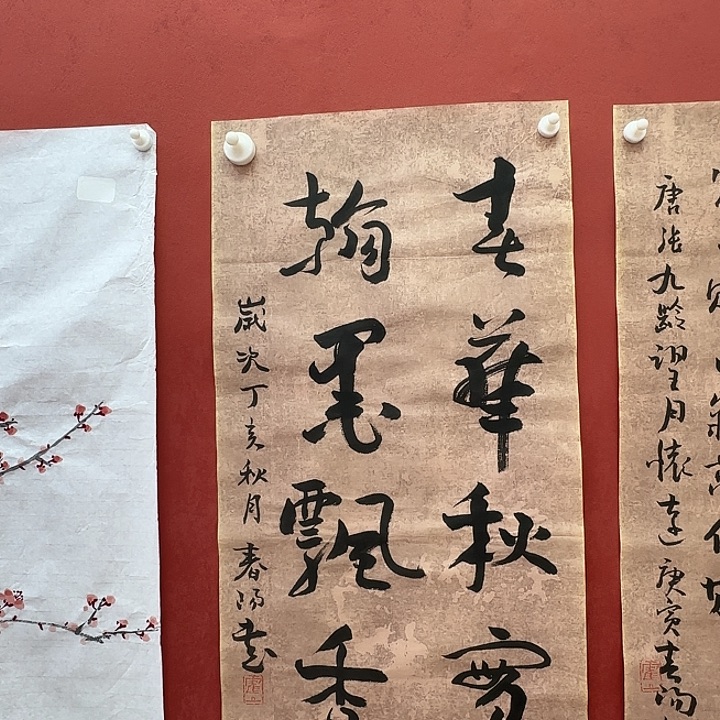 春華秋實
翰墨飄香
歲次丁亥秋月春陽書
唐張九齡望月懷遠庚寅春陽